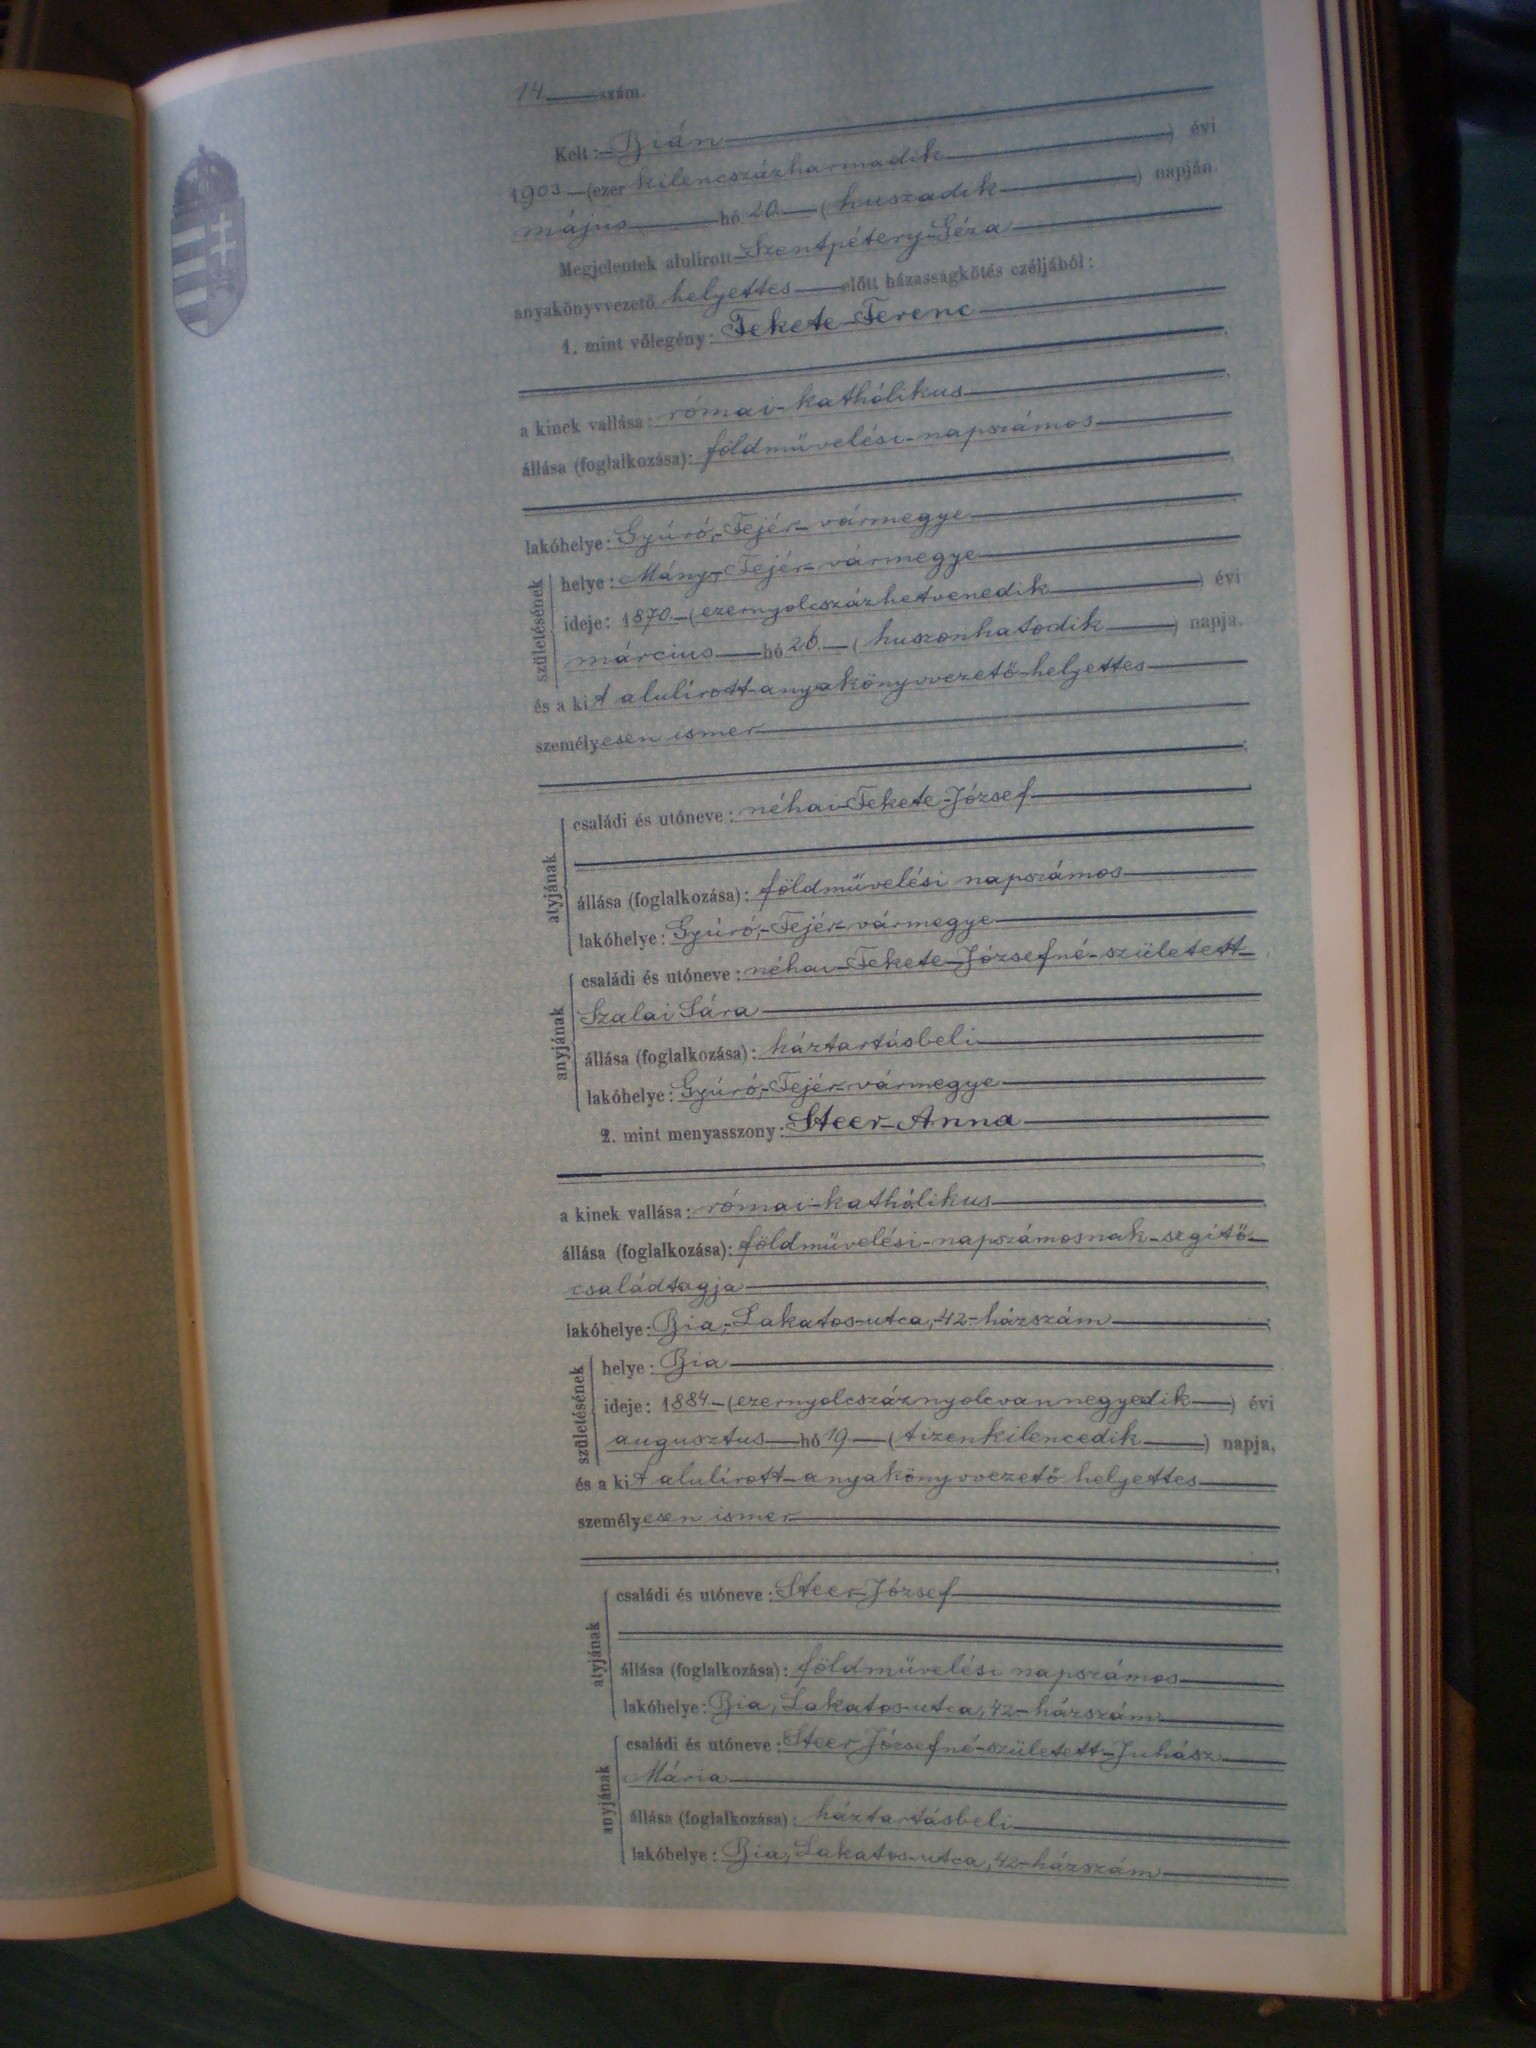 14. szám.
Kelt: Bián
1903 (ezer kilenczszázharmadik) évi
május hó 20. (huszadik) napján.
Megjelentek alulirott Szentpétery Géza
anyakönyvvezető helyettes előtt házasságkötés czéljából:
1. mint vőlegény: Fekete Ferenc
a kinek vallása: római-kathólikus
állása (foglalkozása): földmüvelési-napszámos
lakóhelye: Gyúró, Fejér-vármegye
születésének
helye: Mány, Fejér-vármegye
ideje: 1870. (ezernyolcszázhetvenedik) évi
március hó 26. (huszonhatodik) napja,
és a kit alulírott anyakönyvvezető-helyettes
személyesen ismer
atyjának
családi és utóneve: néhai Fekete József
állása (foglalkozása): földmüvelési napszámos
lakóhelye: Gyúró, Fejér-vármegye
anyjának
családi és utóneve: néhai Fekete Józsefné született
Szalai Sára
állása (foglalkozása): háztartásbeli
lakóhelye: Gyúró, Fejér-vármegye
2. mint menyasszony: Steer Anna
a kinek vallása: római-kathólikus
állása (foglalkozása): földmüvelési-napszámosnak segítő
családtagja
lakóhelye: Bia, Lakatos-utca, 42-házszám
születésének
helye: Bia
ideje: 1884. (ezernyolcszáznyolcvannegyedik) évi
augusztus hó 19. (tizenkilencedik) napja,
és a kit alulírott anyakönyvvezető helyettes
személyesen ismer
atyjának
családi és utóneve: Steer József
állása (foglalkozása): földmüvelési napszámos
lakóhelye: Bia, Lakatos-utca, 42-házszám
anyjának
családi és utóneve: Steer Józsefné született Juhász
Mária
állása (foglalkozása): háztartásbeli
lakóhelye: Bia, Lakatos-utca, 42-házszám